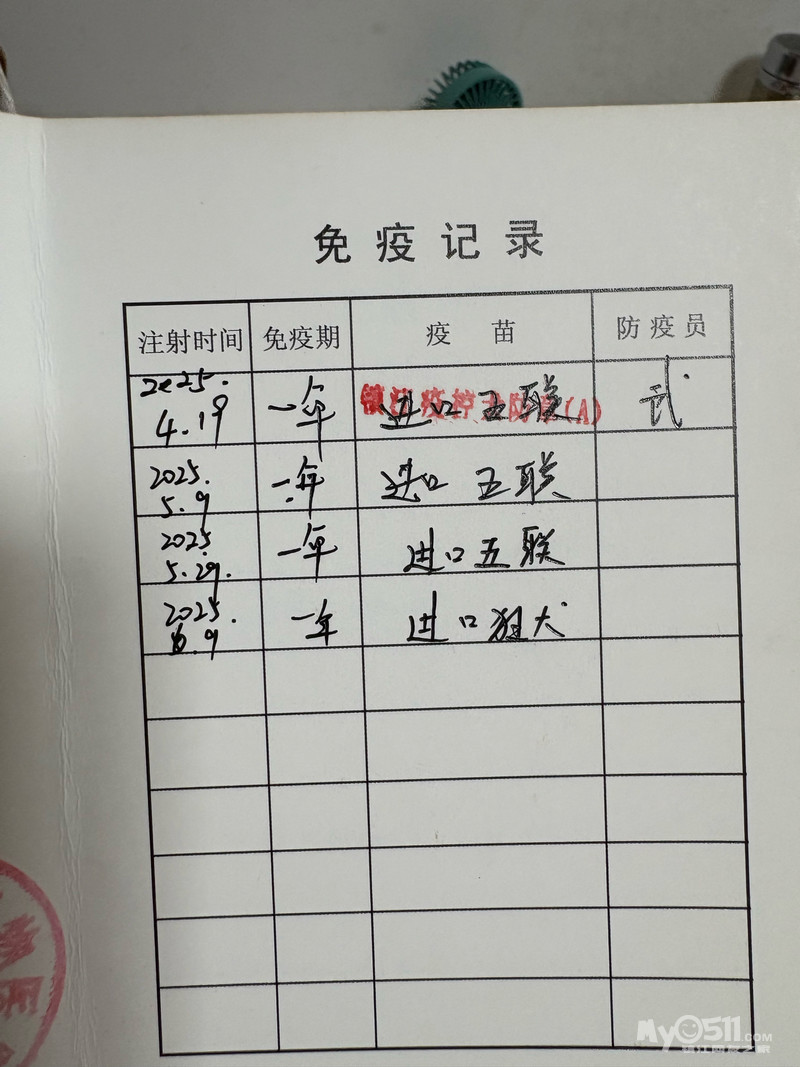 免疫记录
注射时间 免疫期 疫苗 防疫员
2025.
4.19 一年 进口五联 武
镇江疫控 防 (A)
2025.
5.9 一年 进口 五联
2025
5.29. 一年 进口五联
2025.
6.9 一年 进口狂犬
医
My0511.COM
镇江网友之家